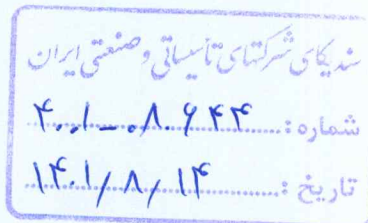 سندیکای شرکتهای تأسیساتی و صنعتی ایران
شماره: ۴۰۱-۰۸۶۴۴
تاریخ: ۱۴۰۱/۸/۱۴